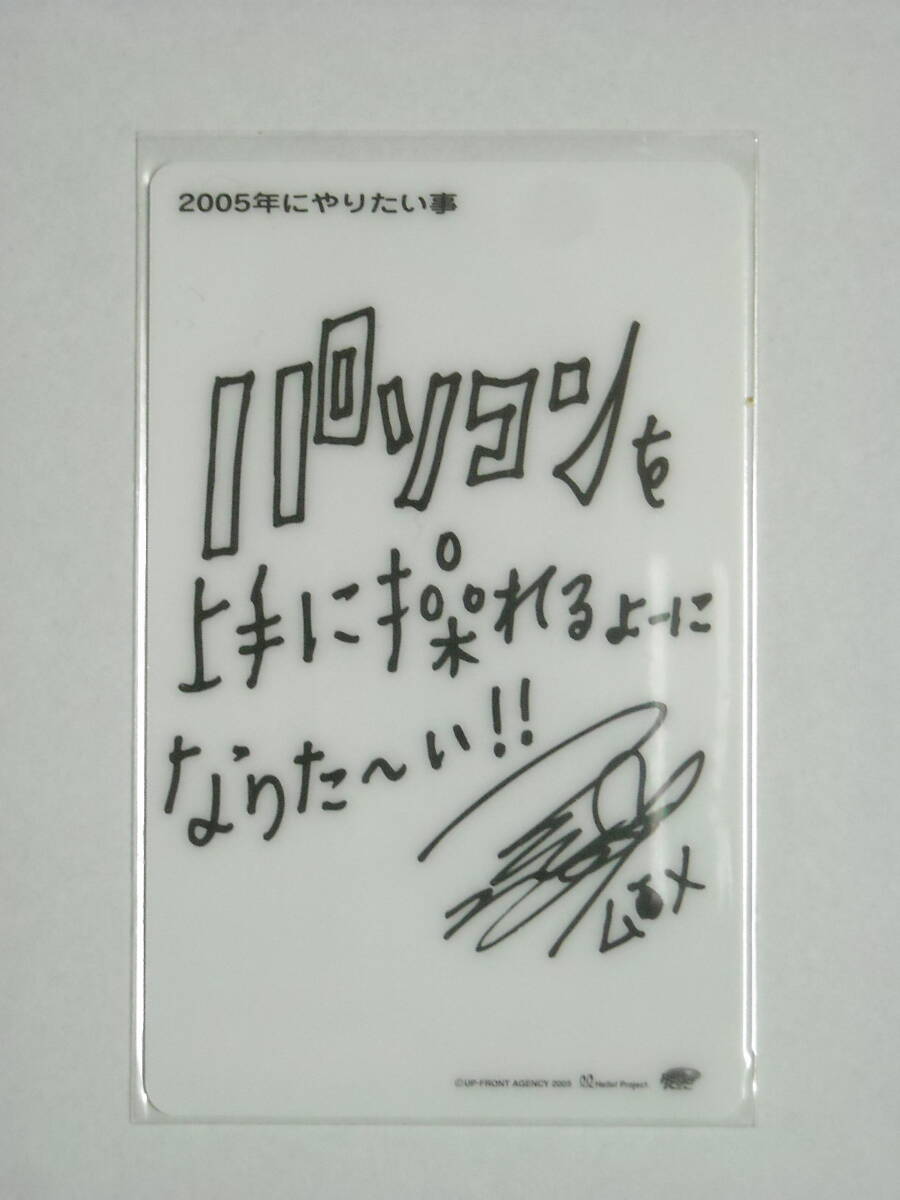 2005年にやりたい事
パソコンを
上手に操れるよーに
なりた〜い!!
©UP-FRONT AGENCY 2005 Hello! Project